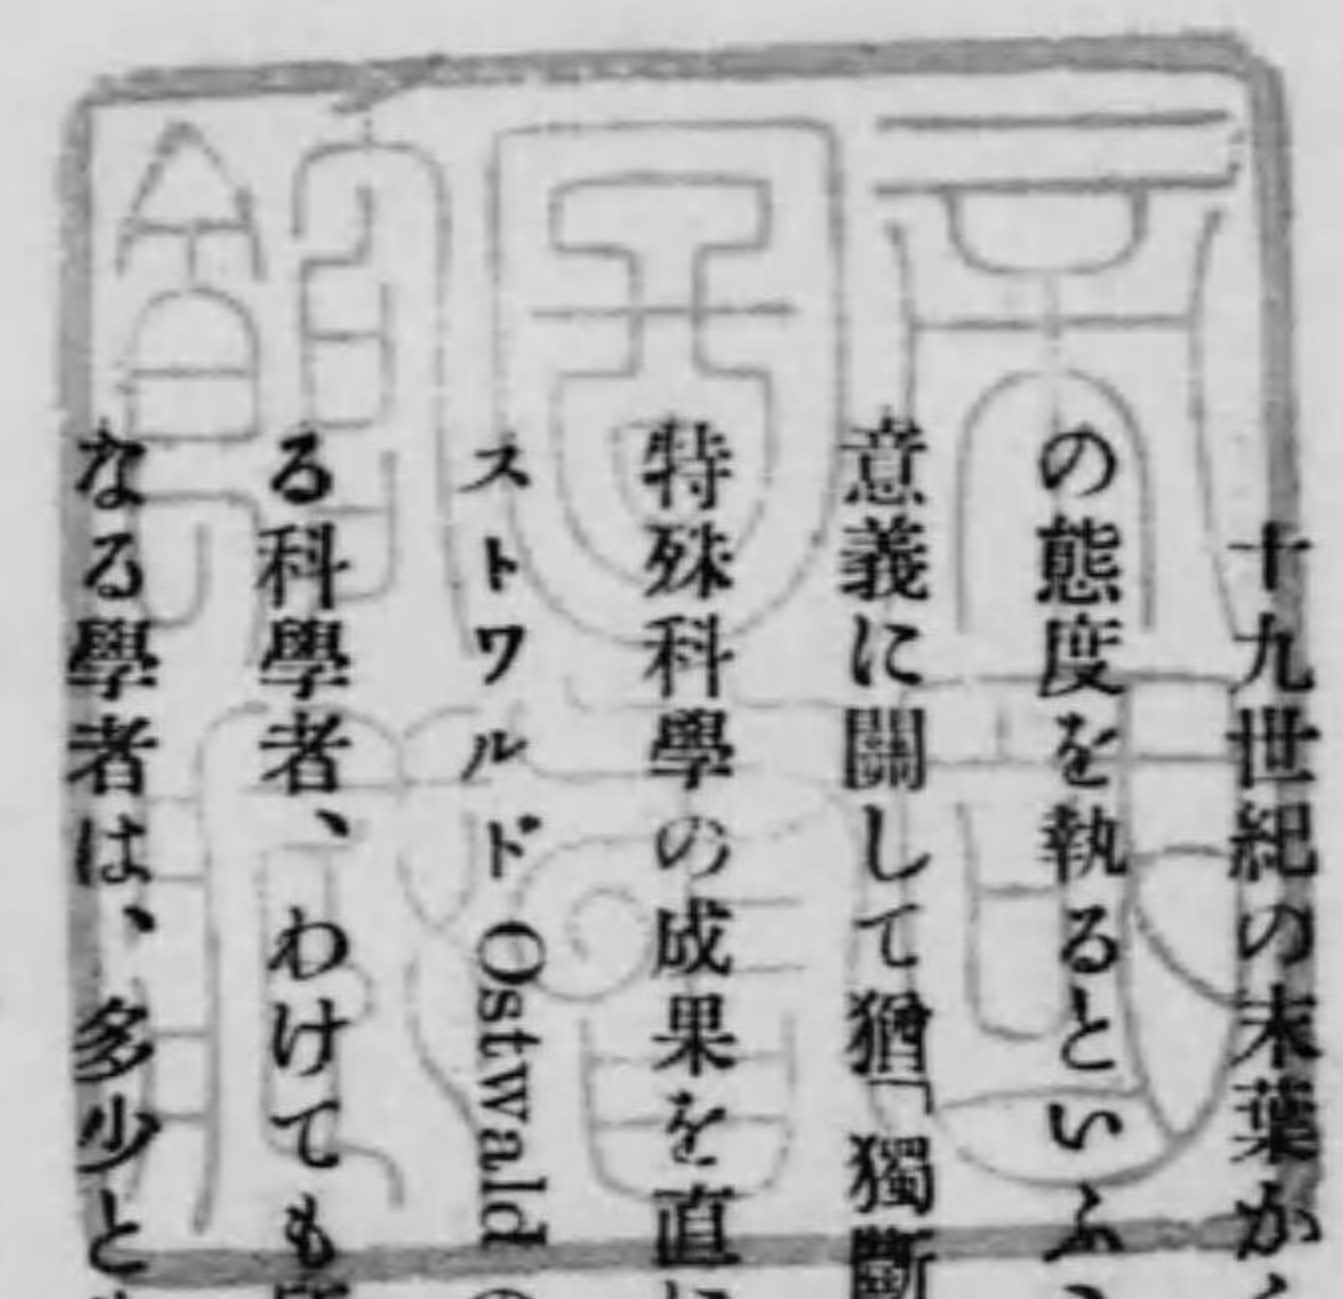 十九世紀の末葉か
の態度を執るといふ
意義に關して猶「獨斷
特殊科學の成果を直に
ストワルド Ostwald
る科學者、わけても
なる學者は、多少と
帝國圖書館藏